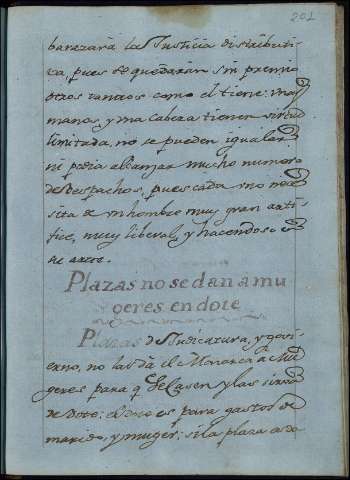 201
barazará la Justicia distributi
va, pues se quedarán sin premio
otros tantos como el tiene: mas
manos, y una cabeza tienen virtud
limitada, no se pueden igualar
ni podia alcanzar mucho numero
de despachos, pues cada uno nece
sita de un hombre muy gran artí
fice, muy liberal, y hacendoso en
Plazas no se dan a mu
geres en dote
Plazas de Judicatura, y govi
erno, no las dá el Monarca à Mu
geres para q. se casen y las sirva
de Dote: el Dote es para gastos de
marido, y muger: si la plaza se da